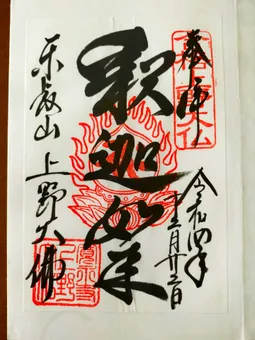 奉拝
令和四年
十二月廿二日
釈迦如来
東叡山 上野大佛